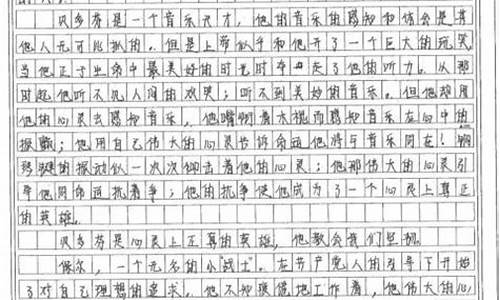 贝多芬是一个音乐天才，他的音乐的感知和体会是其
他人无可比拟的。但是上帝似乎和他开了一个巨大的玩笑
当他正于生命中最美好的时光时夺走了他的听力。从那
时起他听不见人间的欢笑；听不到美妙的音乐。但他却用
他的心灵去感知音乐，他嘴啣着木棍而感知音乐在心中的
振颤；他用自己伟大的心灵告诉命运他将与音乐同在！钢
琴键的振动似一次次叩击着他的心灵；他那伟大的心灵引
导他同命运抗着争；他的抗争使他成为了一个心灵上真正
的英雄。
贝多芬是心灵上正真的英雄，他教会我们坚
保尔，一个无名的小“战士”。在共产党人的引导下开始
了对自己理想的追求。他不知疲倦地工作着，他伟大的心